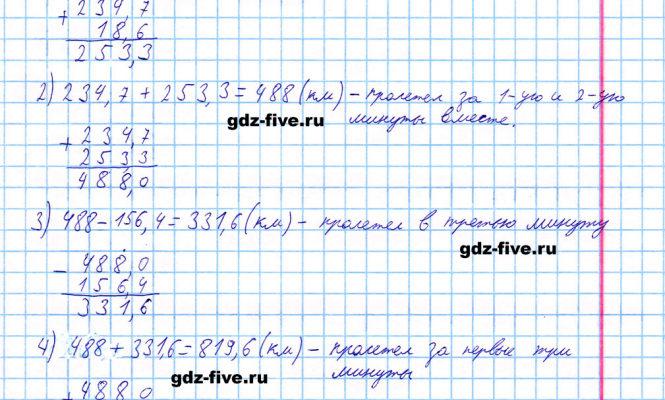 + 234,7
18,6
253,3
2) 234,7 + 253,3 = 488 (км) – пролетел за 1-ую и 2-ую
минуты вместе.
gdz-five.ru
+ 234,7
253,3
488,0
3) 488 – 156,4 = 331,6 (км) – пролетел в третью минуту
gdz-five.ru
– 488,0
156,4
331,6
4) 488 + 331,6 = 819,6 (км) – пролетел за первые три
минуты
gdz-five.ru
+ 488 0